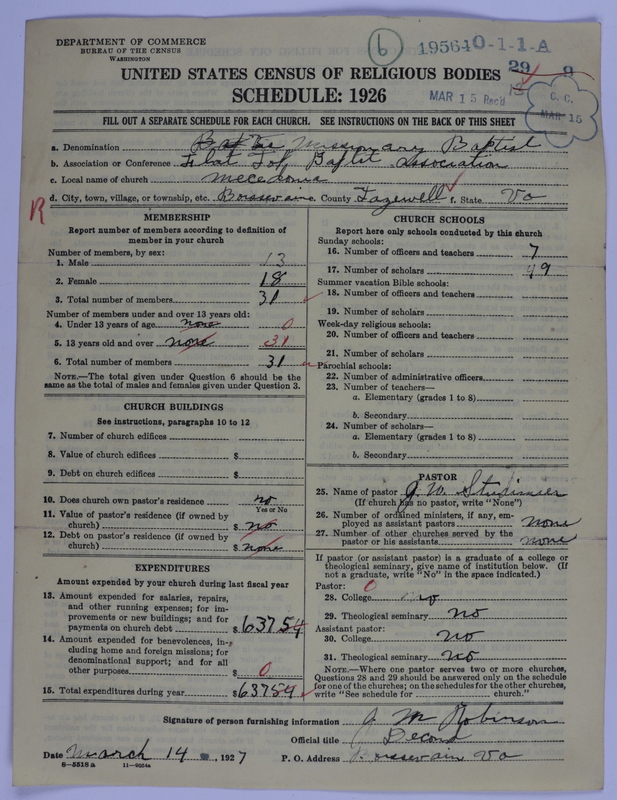 DEPARTMENT OF COMMERCE
BUREAU OF THE CENSUS
WASHINGTON
6
195640-1-1-A
29 9
UNITED STATES CENSUS OF RELIGIOUS BODIES
SCHEDULE: 1926
MAR 15 Rec'd
C. C.
MAR 15
FILL OUT A SEPARATE SCHEDULE FOR EACH CHURCH. SEE INSTRUCTIONS ON THE BACK OF THIS SHEET
a. Denomination Missionary Baptist
b. Association or Conference Flat Top Baptist association
c. Local name of church mecedonia
d. City, town, village, or township, etc. Boissevain e. County Tazewell f. State Va
R
MEMBERSHIP
Report number of members according to definition of
member in your church
Number of members, by sex:
1. Male 13
2. Female 18
3. Total number of members 31
Number of members under and over 13 years old:
4. Under 13 years of age none 0
5. 13 years old and over none 31
6. Total number of members 31
NOTE.—The total given under Question 6 should be the
same as the total of males and females given under Question 3.
CHURCH BUILDINGS
See instructions, paragraphs 10 to 12
7. Number of church edifices
8. Value of church edifices $
9. Debt on church edifices $
10. Does church own pastor's residence no
Yes or No
11. Value of pastor's residence (if owned by
church) $ no
12. Debt on pastor's residence (if owned by
church) $ none
EXPENDITURES
Amount expended by your church during last fiscal year
13. Amount expended for salaries, repairs,
and other running expenses; for im-
provements or new buildings; and for
payments on church debt $ 63754
14. Amount expended for benevolences, in-
cluding home and foreign missions; for
denominational support; and for all
other purposes $ 0
15. Total expenditures during year $ 63754
CHURCH SCHOOLS
Report here only schools conducted by this church
Sunday schools:
16. Number of officers and teachers 7
17. Number of scholars 49
Summer vacation Bible schools:
18. Number of officers and teachers
19. Number of scholars
Week-day religious schools:
20. Number of officers and teachers
21. Number of scholars
Parochial schools:
22. Number of administrative officers
23. Number of teachers—
a. Elementary (grades 1 to 8)
b. Secondary
24. Number of scholars—
a. Elementary (grades 1 to 8)
b. Secondary
PASTOR
25. Name of pastor J. W.
(If church has no pastor, write "None")
26. Number of ordained ministers, if any, em-
ployed as assistant pastors none
27. Number of other churches served by the
pastor or his assistants none
If pastor (or assistant pastor) is a graduate of a college or
theological seminary, give name of institution below. (If
not a graduate, write "No" in the space indicated.)
Pastor: 0
28. College no
29. Theological seminary no
Assistant pastor:
30. College no
31. Theological seminary no
NOTE.—Where one pastor serves two or more churches,
Questions 28 and 29 should be answered only on the schedule
for one of the churches; on the schedules for the other churches,
write "See schedule for church."
Signature of person furnishing information J. M Robinson
Official title Decon
Date March 14, 1927 P. O. Address Boissevain Va
8—5518 a